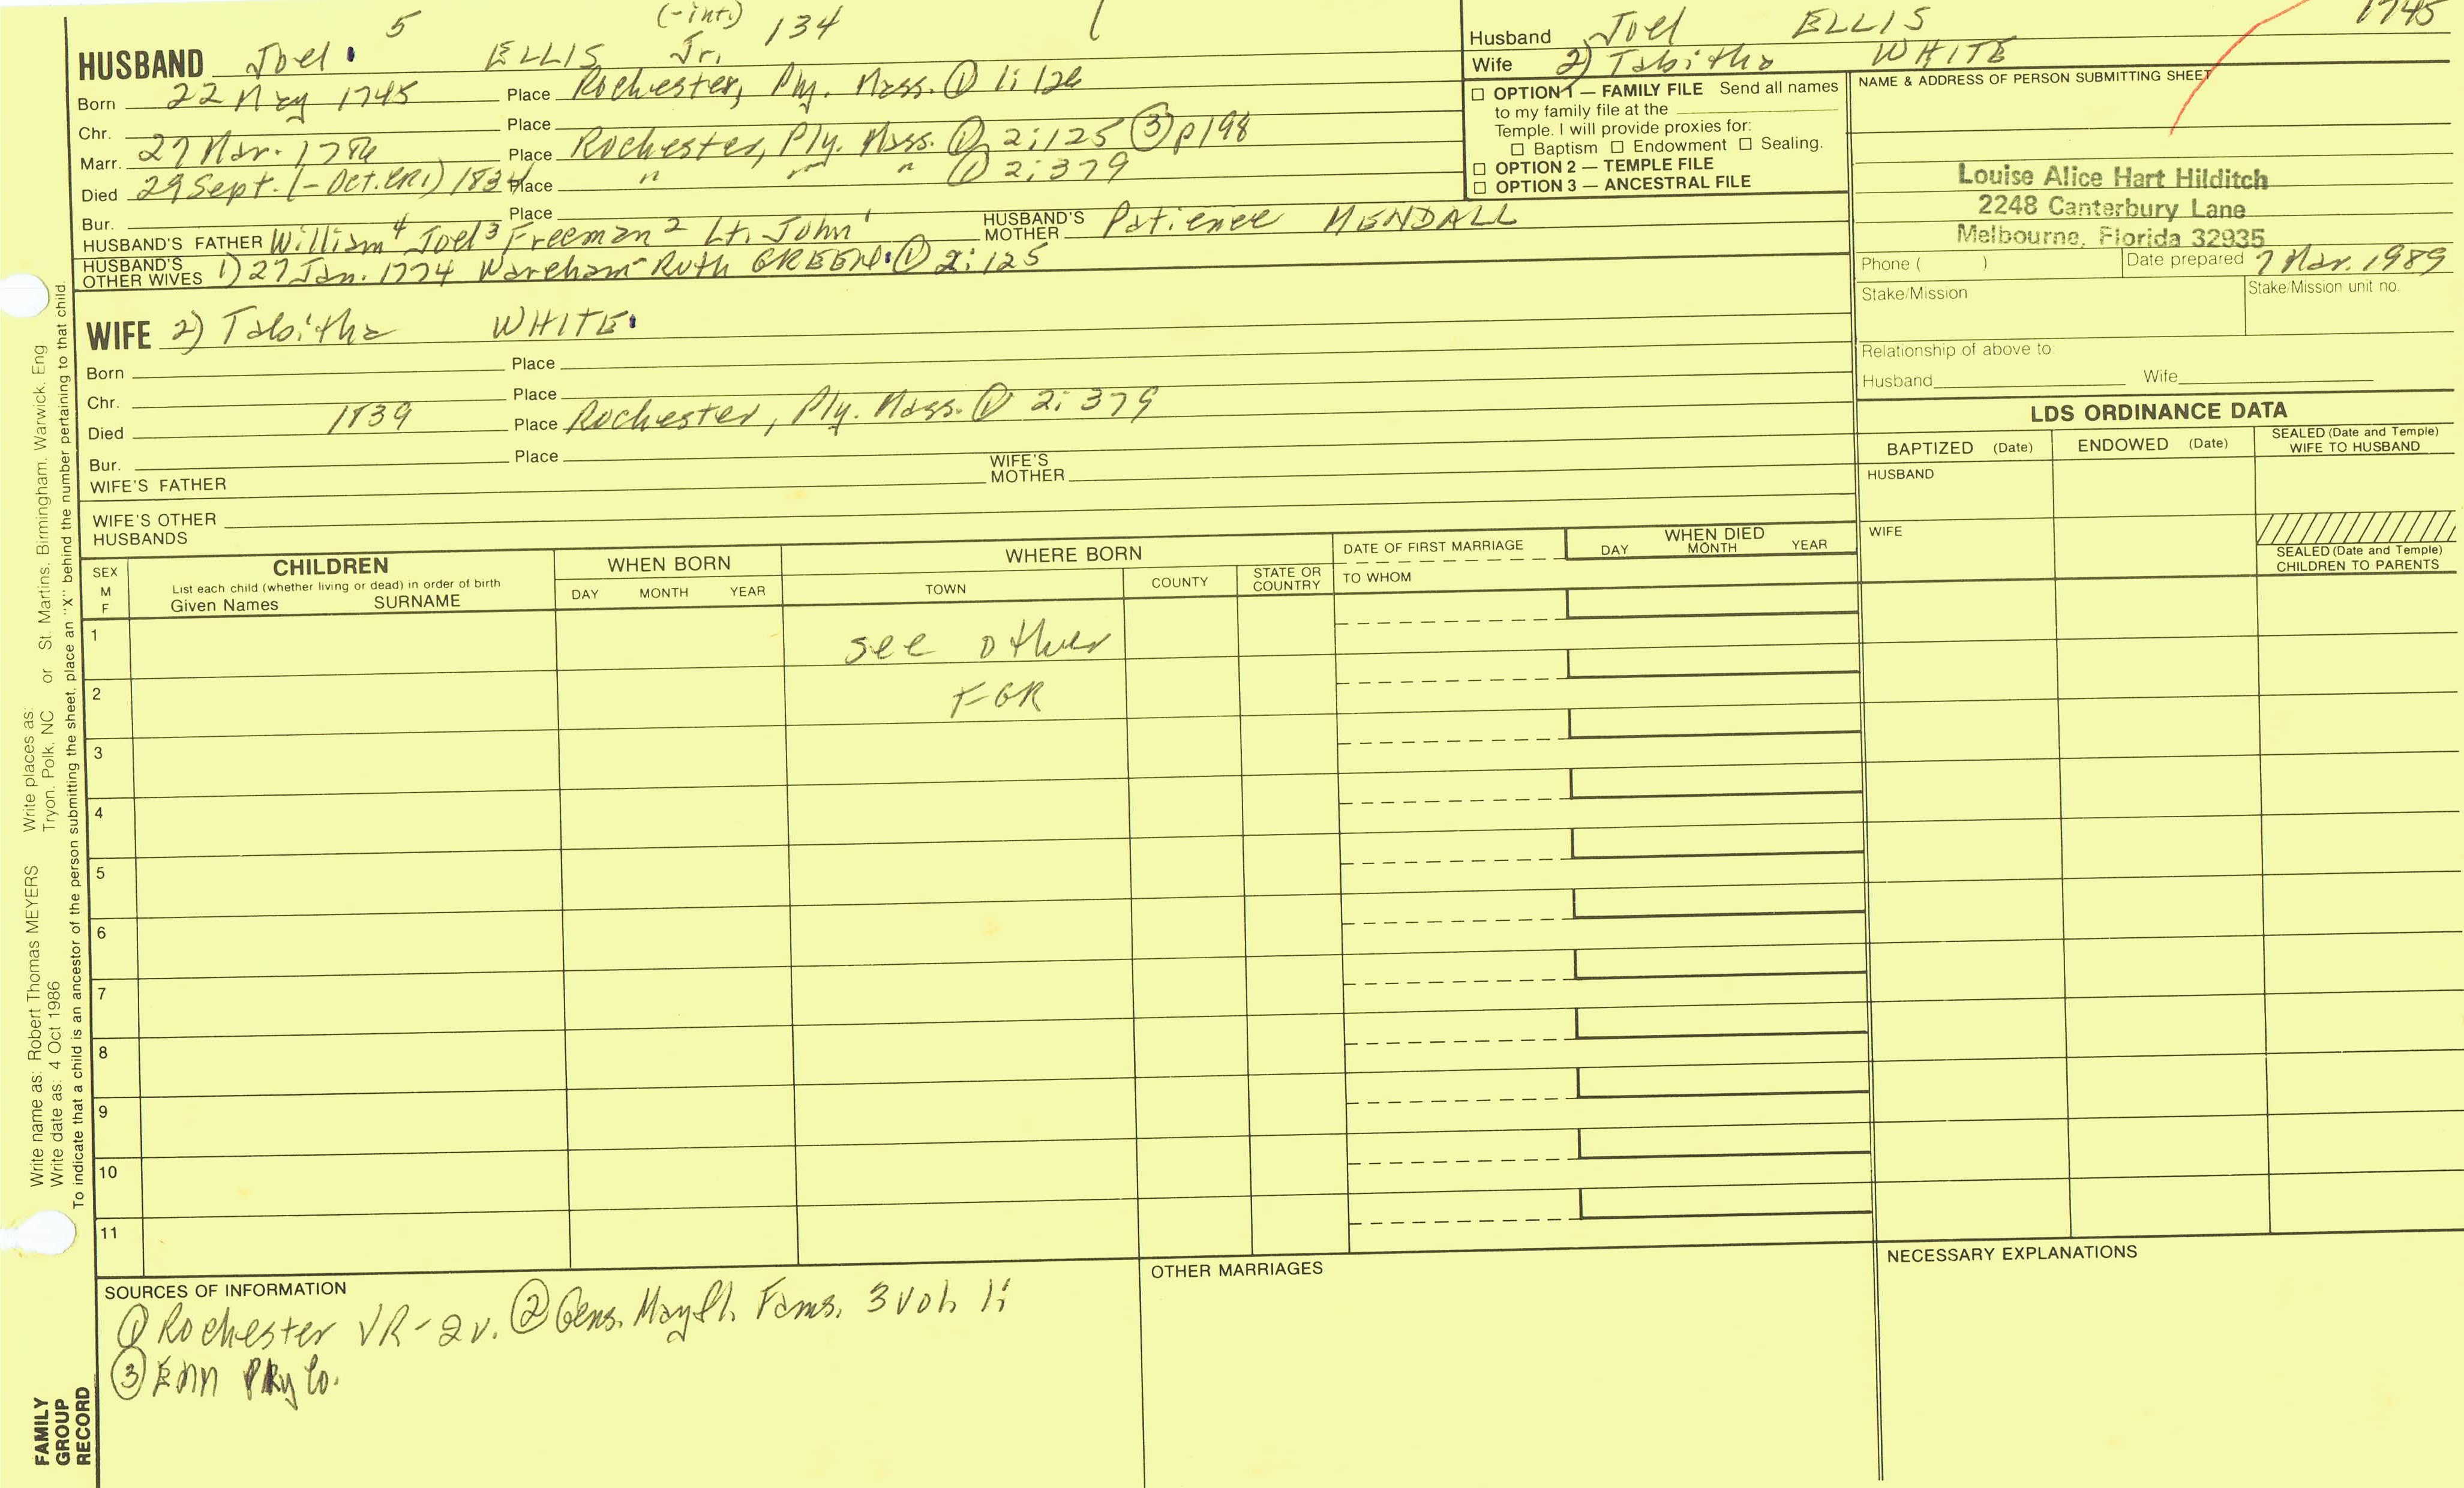 5 (-int.) 134
HUSBAND Joel ELLIS Jr.
Born 22 May 1745 Place Rochester, Ply. Mass. ① 1:126
Chr. Place
Marr. 27 Mar. Place Rochester, Ply. Mass. ① 2:125 ③ p198
Died 29 Sept. (-Oct. CR1) 1834 Place " " " ① 2:379
Bur. Place
HUSBAND'S FATHER William⁴ Joel³ Freeman² Lt. John¹ HUSBAND'S MOTHER Patience MENDALL
HUSBAND'S OTHER WIVES 1) 27 Jan. 1774 Wareham - Ruth GREEN ① 2:125
WIFE 2) Tabitha WHITE
Born Place
Chr. Place
Died 1839 Place Rochester, Ply. Mass. ① 2:379
Bur. Place
WIFE'S FATHER WIFE'S MOTHER
WIFE'S OTHER HUSBANDS
Husband Joel ELLIS 1745
Wife 2) Tabitha WHITE
☐ OPTION 1 — FAMILY FILE Send all names
to my family file at the
Temple. I will provide proxies for:
☐ Baptism ☐ Endowment ☐ Sealing.
☐ OPTION 2 — TEMPLE FILE
☐ OPTION 3 — ANCESTRAL FILE
NAME & ADDRESS OF PERSON SUBMITTING SHEET
Louise Alice Hart Hilditch
2248 Canterbury Lane
Melbourne, Florida 32935
Phone ( ) Date prepared 7 Mar. 1989
Stake/Mission Stake/Mission unit no.
Relationship of above to:
Husband Wife
LDS ORDINANCE DATA
BAPTIZED (Date) ENDOWED (Date) SEALED (Date and Temple) WIFE TO HUSBAND
HUSBAND
WIFE
SEALED (Date and Temple) CHILDREN TO PARENTS
SEX M F
CHILDREN
List each child (whether living or dead) in order of birth
Given Names SURNAME
WHEN BORN
DAY MONTH YEAR
WHERE BORN
TOWN COUNTY STATE OR COUNTRY
DATE OF FIRST MARRIAGE
TO WHOM
WHEN DIED
DAY MONTH YEAR
1 see other
2 FGR
3
4
5
6
7
8
9
10
11
SOURCES OF INFORMATION
① Rochester VR-2v. ② Gens. Mayfl. Fams. 3 vol. 1:
③ Ply Co.
OTHER MARRIAGES
NECESSARY EXPLANATIONS
Write name as: Robert Thomas MEYERS Write places as: St. Martins, Birmingham, Warwick, Eng
Write date as: 4 Oct 1986 Tryon, Polk, NC or
To indicate that a child is an ancestor of the person submitting the sheet, place an "X" behind the number pertaining to that child.
FAMILY
GROUP
RECORD